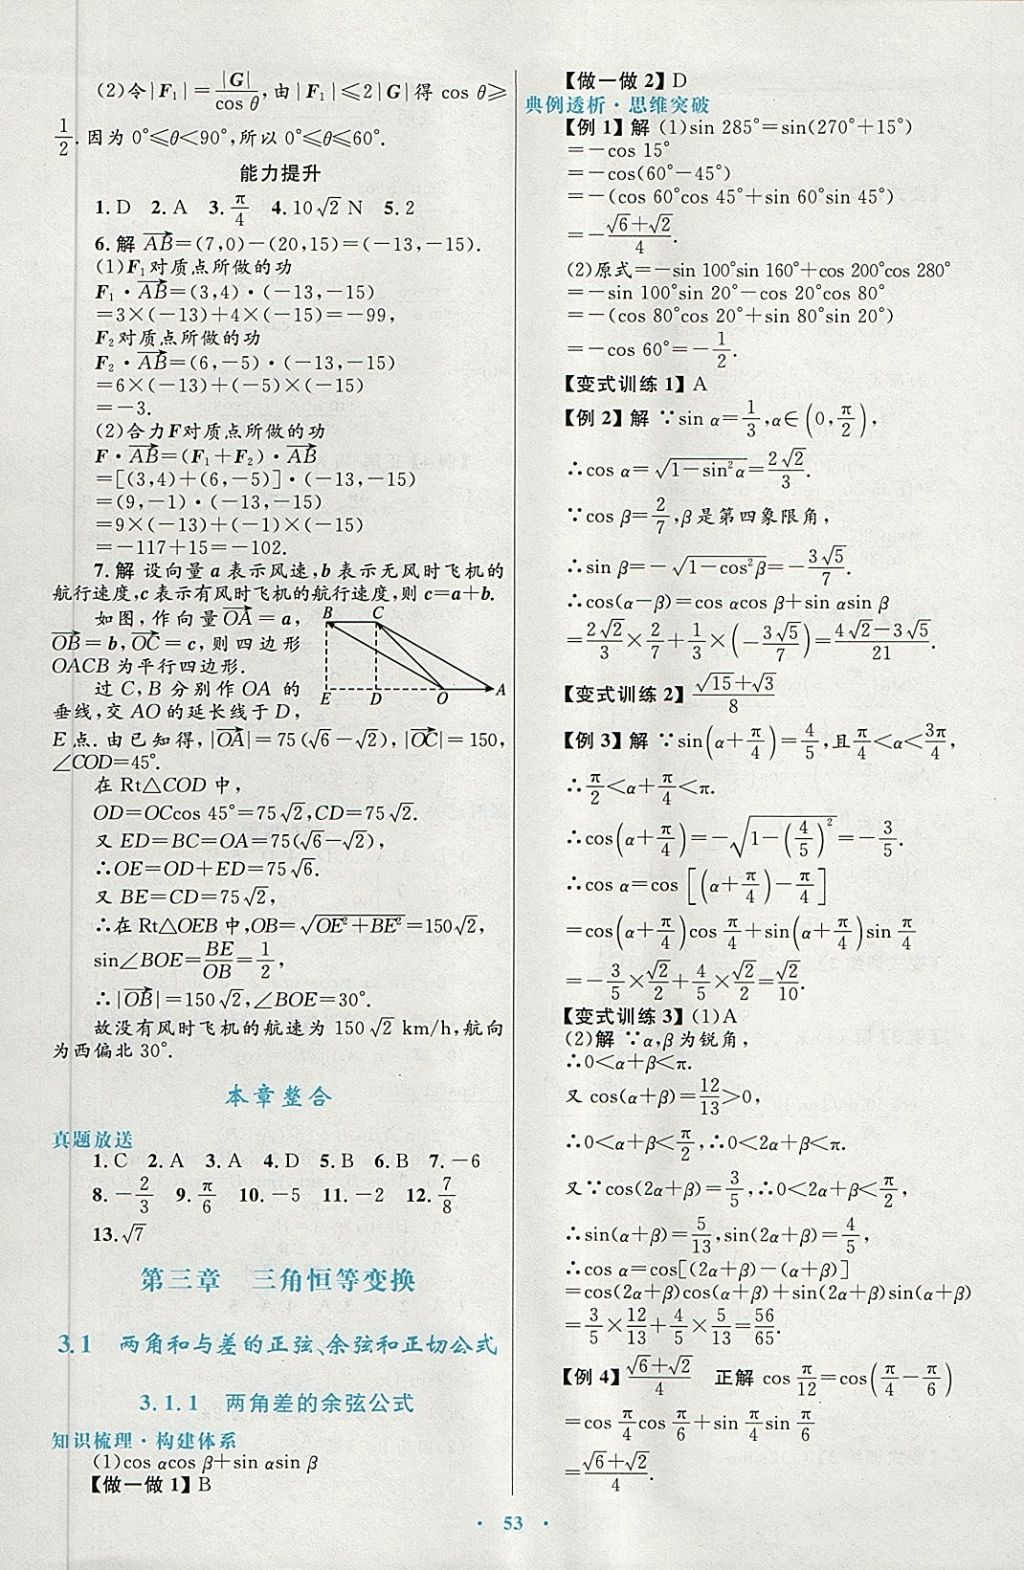 (2)令|F₁|=|G|/cos θ,由|F₁|≤2|G|得 cos θ≥
1/2.因为 0°≤θ<90°,所以 0°≤θ≤60°.
能力提升
1.D 2.A 3.π/4 4.10√2 N 5.2
6.解 AB→=(7,0)-(20,15)=(-13,-15).
(1)F₁对质点所做的功
F₁·AB→=(3,4)·(-13,-15)
=3×(-13)+4×(-15)=-99,
F₂对质点所做的功
F₂·AB→=(6,-5)·(-13,-15)
=6×(-13)+(-5)×(-15)
=-3.
(2)合力F对质点所做的功
F·AB→=(F₁+F₂)·AB→
=[(3,4)+(6,-5)]·(-13,-15)
=(9,-1)·(-13,-15)
=9×(-13)+(-1)×(-15)
=-117+15=-102.
7.解 设向量 a 表示风速,b 表示无风时飞机的
航行速度,c 表示有风时飞机的航行速度,则 c=a+b.
如图,作向量OA→=a,
OB→=b,OC→=c,则四边形
OACB 为平行四边形.
过 C,B 分别作 OA 的
垂线,交 AO 的延长线于 D,
B C
E D O A
E 点.由已知得,|OA→|=75(√6-√2),|OC→|=150,
∠COD=45°.
在 Rt△COD 中,
OD=OCcos 45°=75√2,CD=75√2.
又 ED=BC=OA=75(√6-√2),
∴OE=OD+ED=75√6.
又 BE=CD=75√2,
∴在 Rt△OEB 中,OB=√(OE²+BE²)=150√2,
sin∠BOE=BE/OB=1/2,
∴|OB→|=150√2,∠BOE=30°.
故没有风时飞机的航速为 150√2 km/h,航向
为西偏北 30°.
本章整合
真题放送
1.C 2.A 3.A 4.D 5.B 6.B 7.-6
8.-2/3 9.π/6 10.-5 11.-2 12.7/8
13.√7
第三章 三角恒等变换
3.1 两角和与差的正弦、余弦和正切公式
3.1.1 两角差的余弦公式
知识梳理·构建体系
(1)cos αcos β+sin αsin β
【做一做 1】B
【做一做 2】D
典例透析·思维突破
【例 1】解 (1)sin 285°=sin(270°+15°)
=-cos 15°
=-cos(60°-45°)
=-(cos 60°cos 45°+sin 60°sin 45°)
=-(√6+√2)/4.
(2)原式=-sin 100°sin 160°+cos 200°cos 280°
=-sin 100°sin 20°-cos 20°cos 80°
=-(cos 80°cos 20°+sin 80°sin 20°)
=-cos 60°=-1/2.
【变式训练 1】A
【例 2】解 ∵sin α=1/3,α∈(0,π/2),
∴cos α=√(1-sin²α)=2√2/3.
∵cos β=2/7,β是第四象限角,
∴sin β=-√(1-cos²β)=-3√5/7.
∴cos(α-β)=cos αcos β+sin αsin β
=2√2/3×2/7+1/3×(-3√5/7)=(4√2-3√5)/21.
【变式训练 2】(√15+√3)/8
【例 3】解 ∵sin(α+π/4)=4/5,且π/4<α<3π/4,
∴π/2<α+π/4<π.
∴cos(α+π/4)=-√(1-(4/5)²)=-3/5.
∴cos α=cos[(α+π/4)-π/4]
=cos(α+π/4)cos π/4+sin(α+π/4)sin π/4
=-3/5×√2/2+4/5×√2/2=√2/10.
【变式训练 3】(1)A
(2)解 ∵α,β为锐角,
∴0<α+β<π.
又 cos(α+β)=12/13>0,
∴0<α+β<π/2,∴0<2α+β<π.
又∵cos(2α+β)=3/5,∴0<2α+β<π/2,
∴sin(α+β)=5/13,sin(2α+β)=4/5,
∴cos α=cos[(2α+β)-(α+β)]
=cos(2α+β)cos(α+β)+sin(2α+β)sin(α+β)
=3/5×12/13+4/5×5/13=56/65.
【例 4】(√6+√2)/4 正解 cos π/12=cos(π/4-π/6)
=cos π/4 cos π/6+sin π/4 sin π/6
=(√6+√2)/4.
· 53 ·